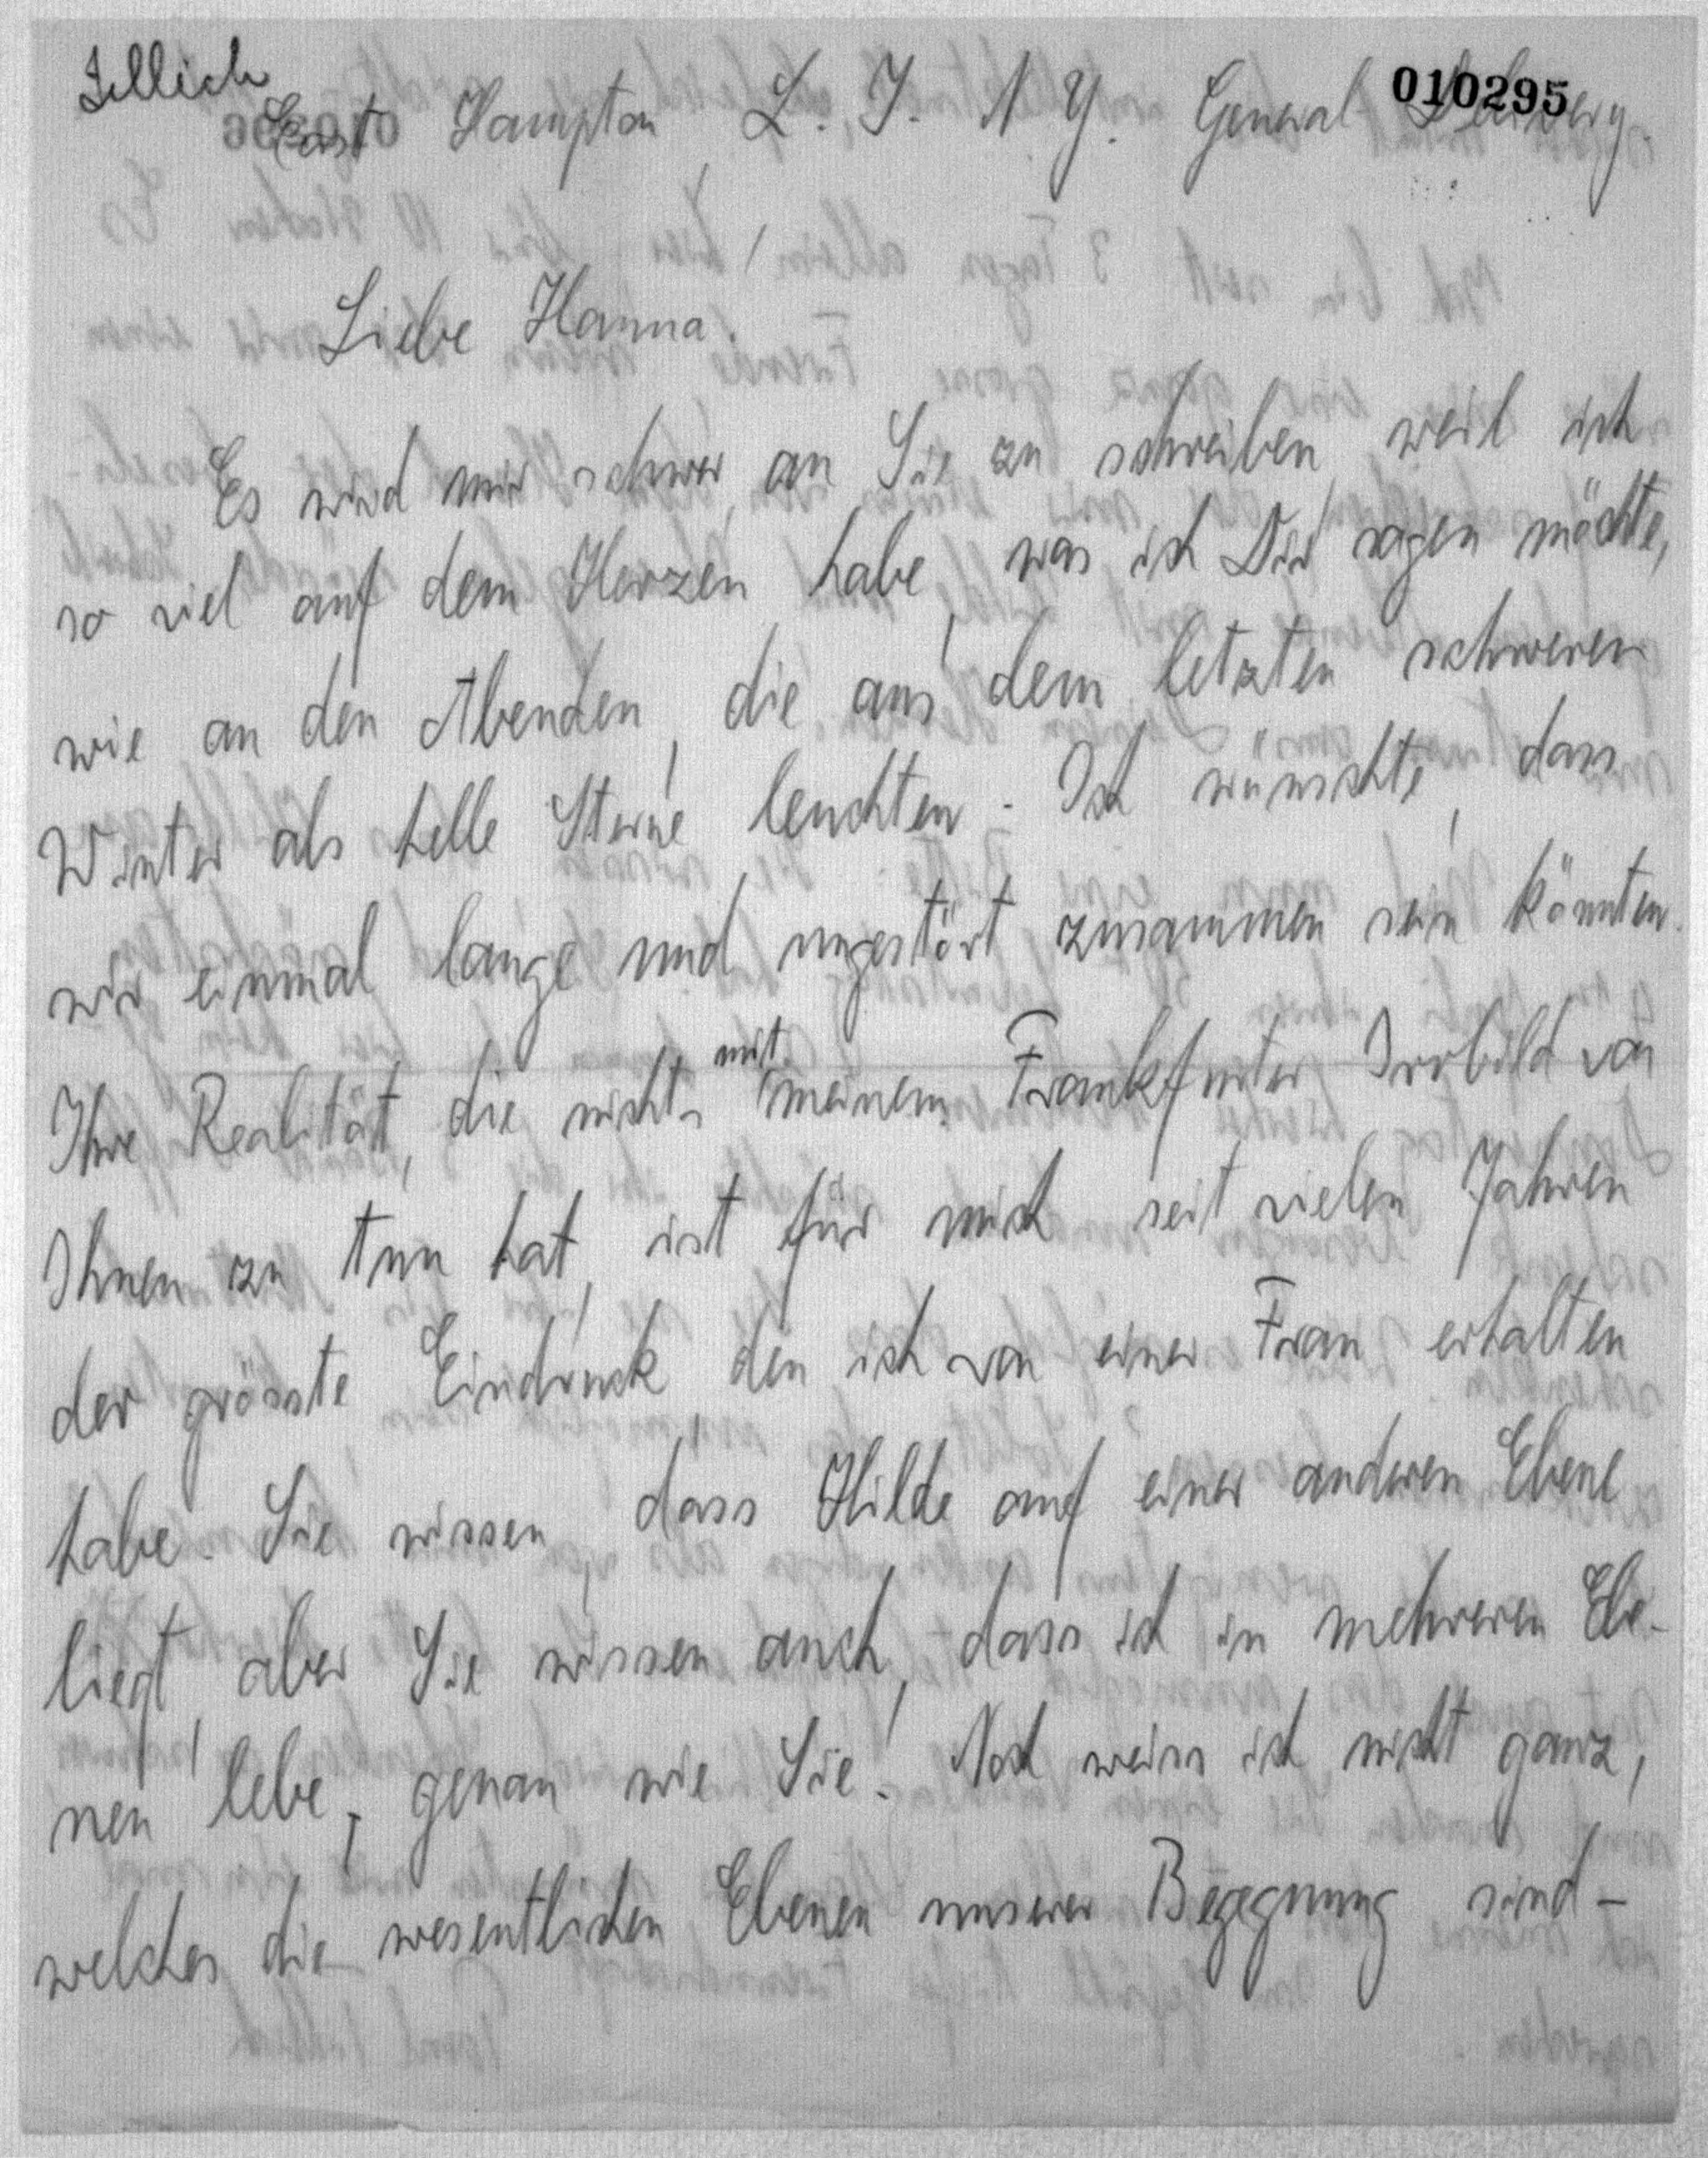 Tillich
010295
East Hampton L. I. N Y. General Delivery.
Liebe Hanna.
Es wird mir schwer, an Sie zu schreiben, weil ich
so viel auf dem Herzen habe, was ich Dir sagen möchte,
wie an den Abenden, die aus dem letzten schweren
Winter als helle Sterne leuchten. Ich wünschte, dass
wir einmal lange und ungestört zusammen sein könnten.
Ihre Realität, die nichts mit meinem Frankfurter Irrbild von
Ihnen zu tun hat, ist für mich seit vielen Jahren
der grösste Eindruck, den ich von einer Frau erhalten
habe. Sie wissen, dass Hilde auf einer anderen Ebene
liegt, aber Sie wissen auch, dass ich in mehreren Ebe-
nen lebe, genau wie Sie! Noch weiss ich nicht ganz,
welches die wesentlichen Ebenen unserer Begegnung sind –